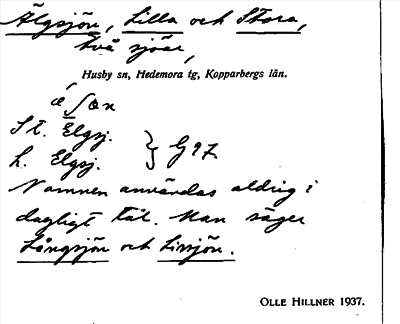 Älgsjön, Lilla och Stora,
två sjöar,
Husby sn, Hedemora tg, Kopparbergs län.
St. Elgsj.
L. Elgsj. } G 97.
Namnen användas aldrig i
dagligt tal. Man säger
Långsjön och Linsjön.
OLLE HILLNER 1937.